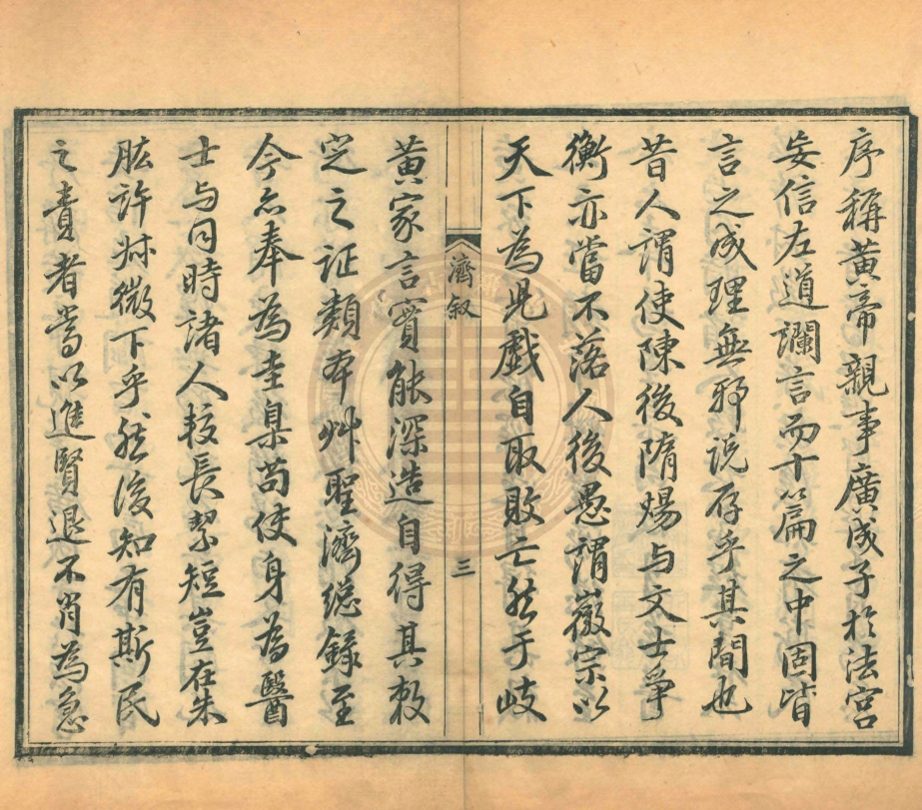 序稱黃帝親事廣成子於法宮
妄信左道讕言而十篇之中固皆
言之成理無邪说存乎其間也
昔人謂使陳後隋煬与文士爭
衡亦當不落人後愚謂徽宗以
天下為児戲自取敗亡然于岐
濟叙
三
黃家言實能深造自得其敕
定之证類本艸聖濟總錄至
今亦奉為圭臬苟使身為醫
士与同時諸人較長絜短豈在朱
肱许叔微下乎然後知有斯民
之責者當以進賢退不肖為急